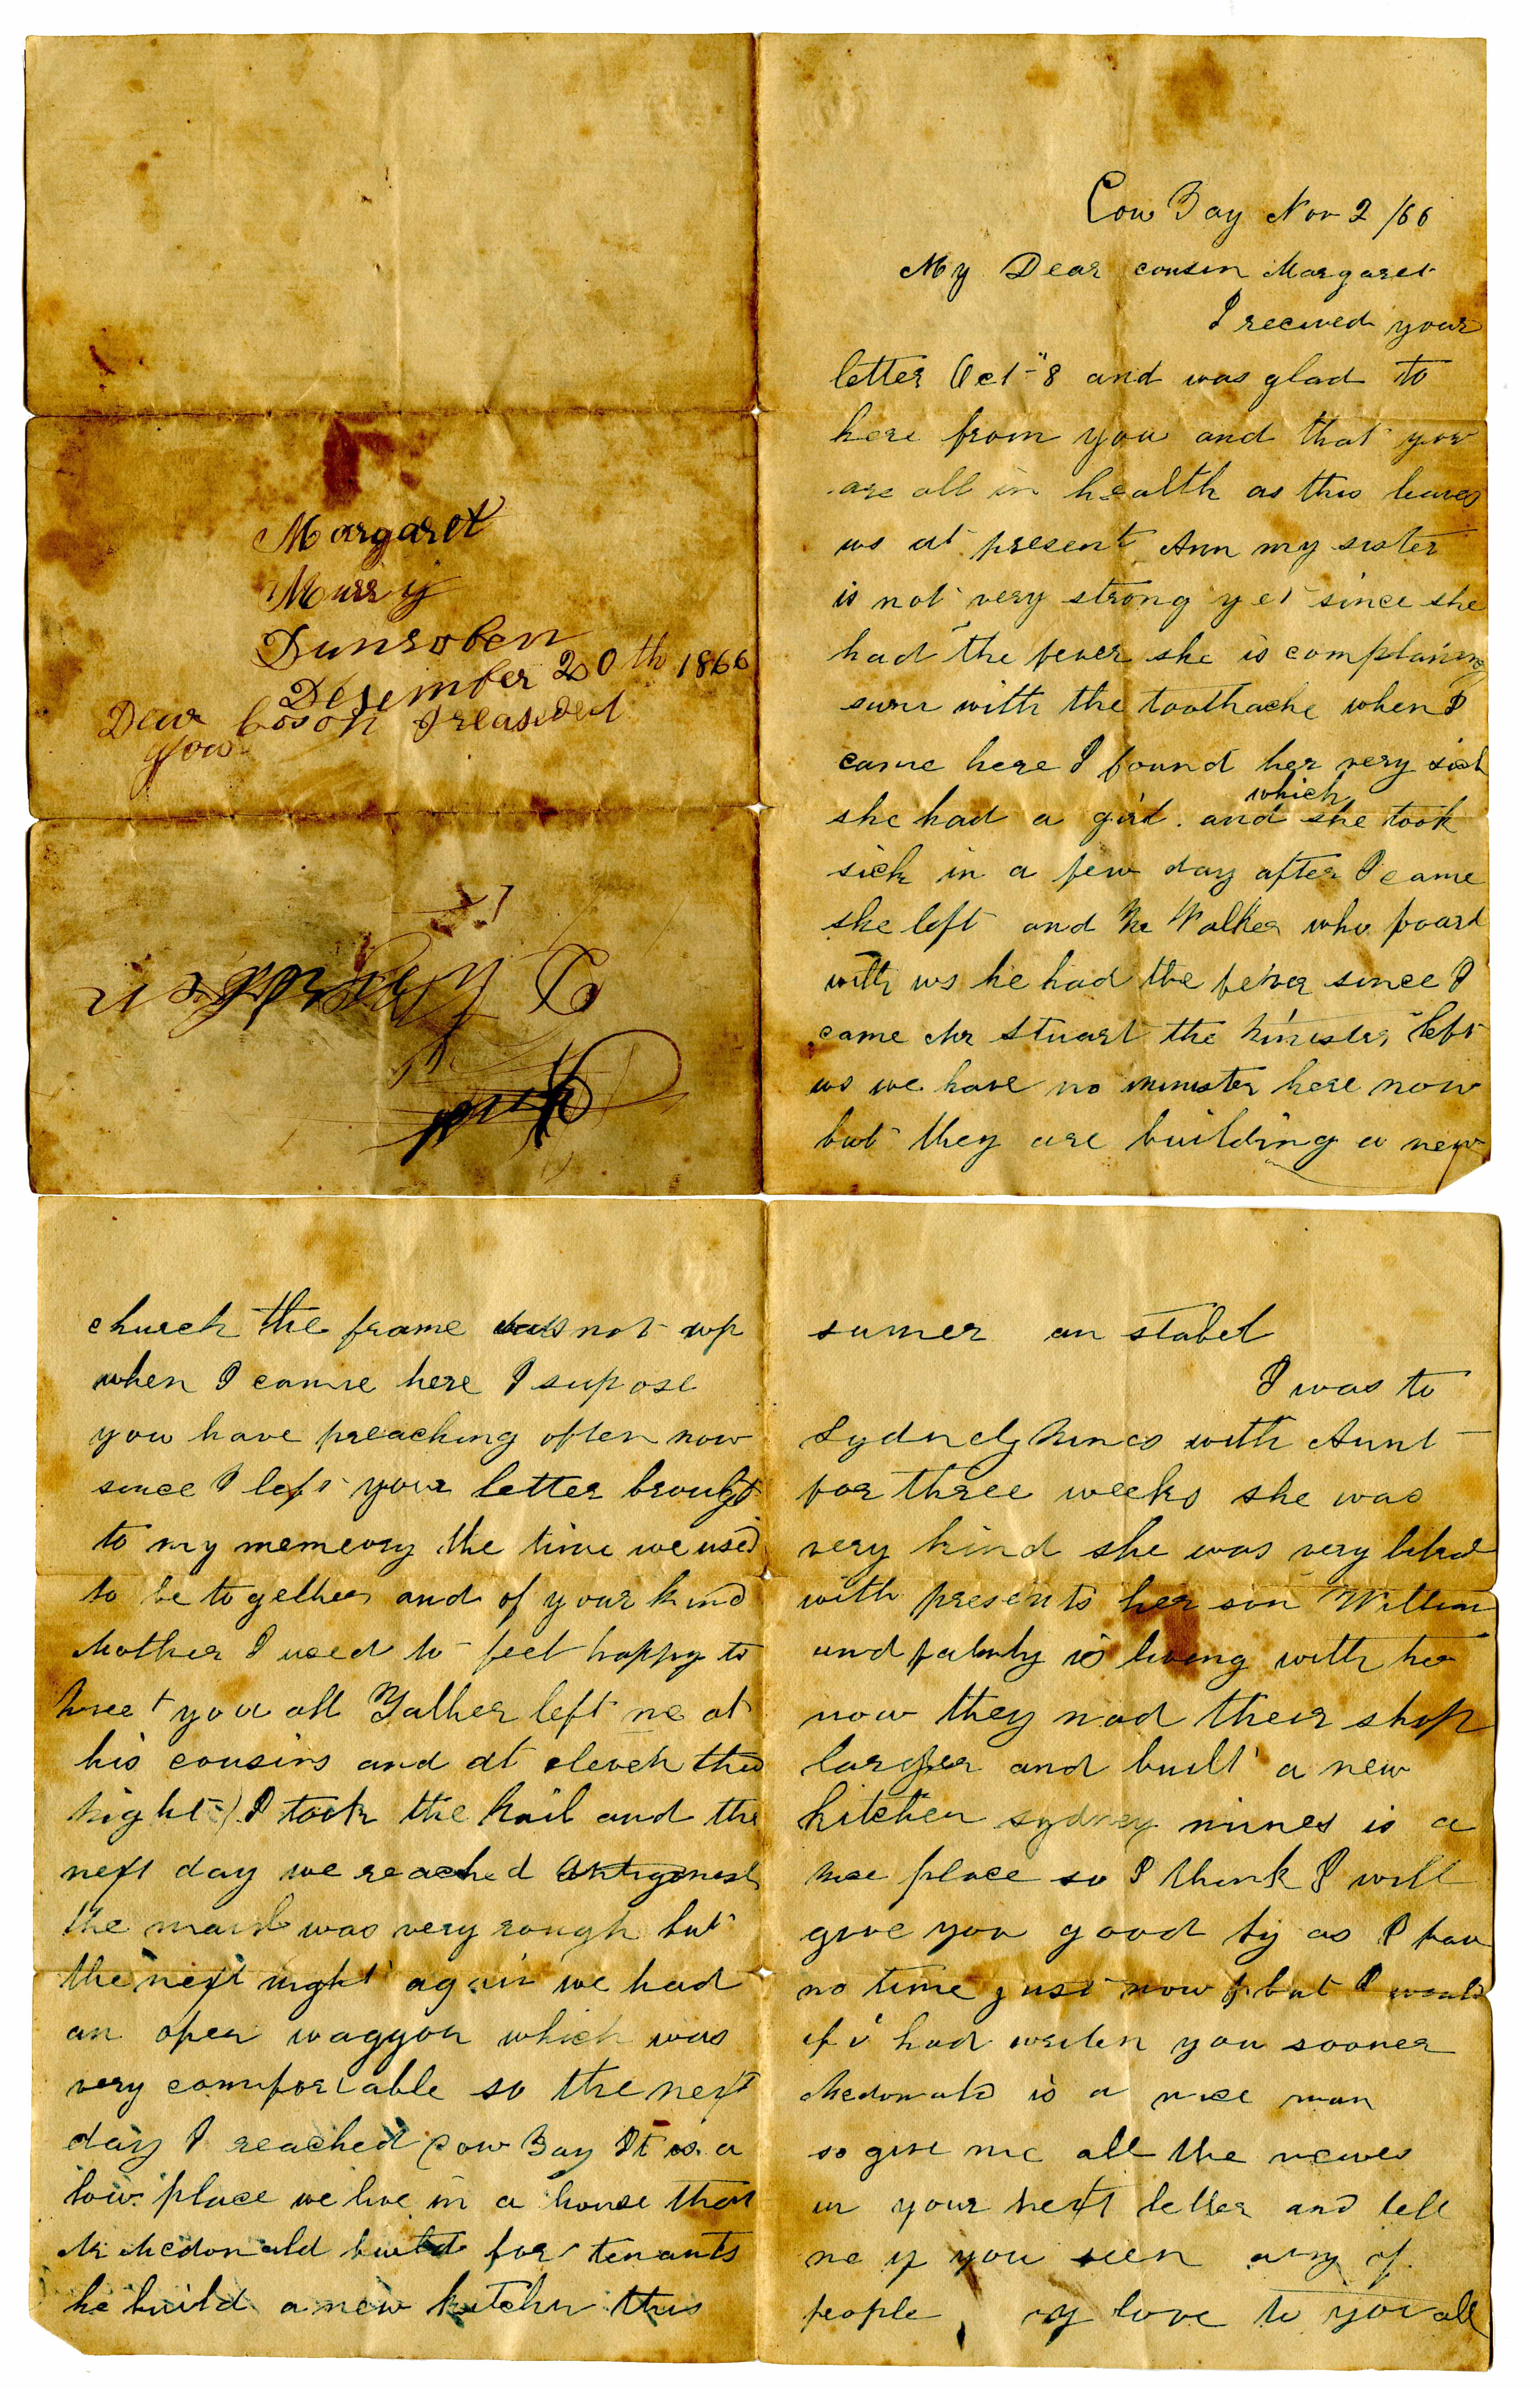 Cow Bay Nov 2 /66
My Dear cousin Margaret
I recived your
letter Oct 8 and was glad to
here from you and that you
are all in health as this leaves
us at present Ann my sister
is not very strong yet since she
had the fever she is complaining
with the toothache when I
came here I found her very sick
she had a girl and which she took
sick in a few day after I came
she left and Mr Walker who board
with us he had the fever since I
came Mr Stuart the Minister left
us we have no minister here now
but they are building a new
church the frame was not up
when I came here I supose
you have preaching often now
since I left your letter brought
to my memeory the time we used
to be together and of your kind
Mother I used to feel happy to
meet you all Father left me at
his cousins and at eleven that
night I took the Mail and the
next day we reached Antigonish
the was very rough but
the next night again we had
an open waggon which was
very comfortable so the next
day I reached Cow Bay It is a
low place we live in a house that
Mr Mcdonald build for tenants
he build a new kitchn this
sumer an stabel
I was to
Sydney Mines with Aunt
for three weeks she was
very kind she was very
with presents her son William
and is living with her
now they mad their shop
larger and built a new
kitchen sydney mines is a
nice place so I think I will
give you good by as I hav
no time just now but I would
if i had writen you sooner
Mcdonald is a nice man
so give me all the newes
in your next letter and tell
me if you seen any of
people my love to you all
Margaret
Murry
Dunroben
Desember 20th 1866
Dear coson I reaseved
you